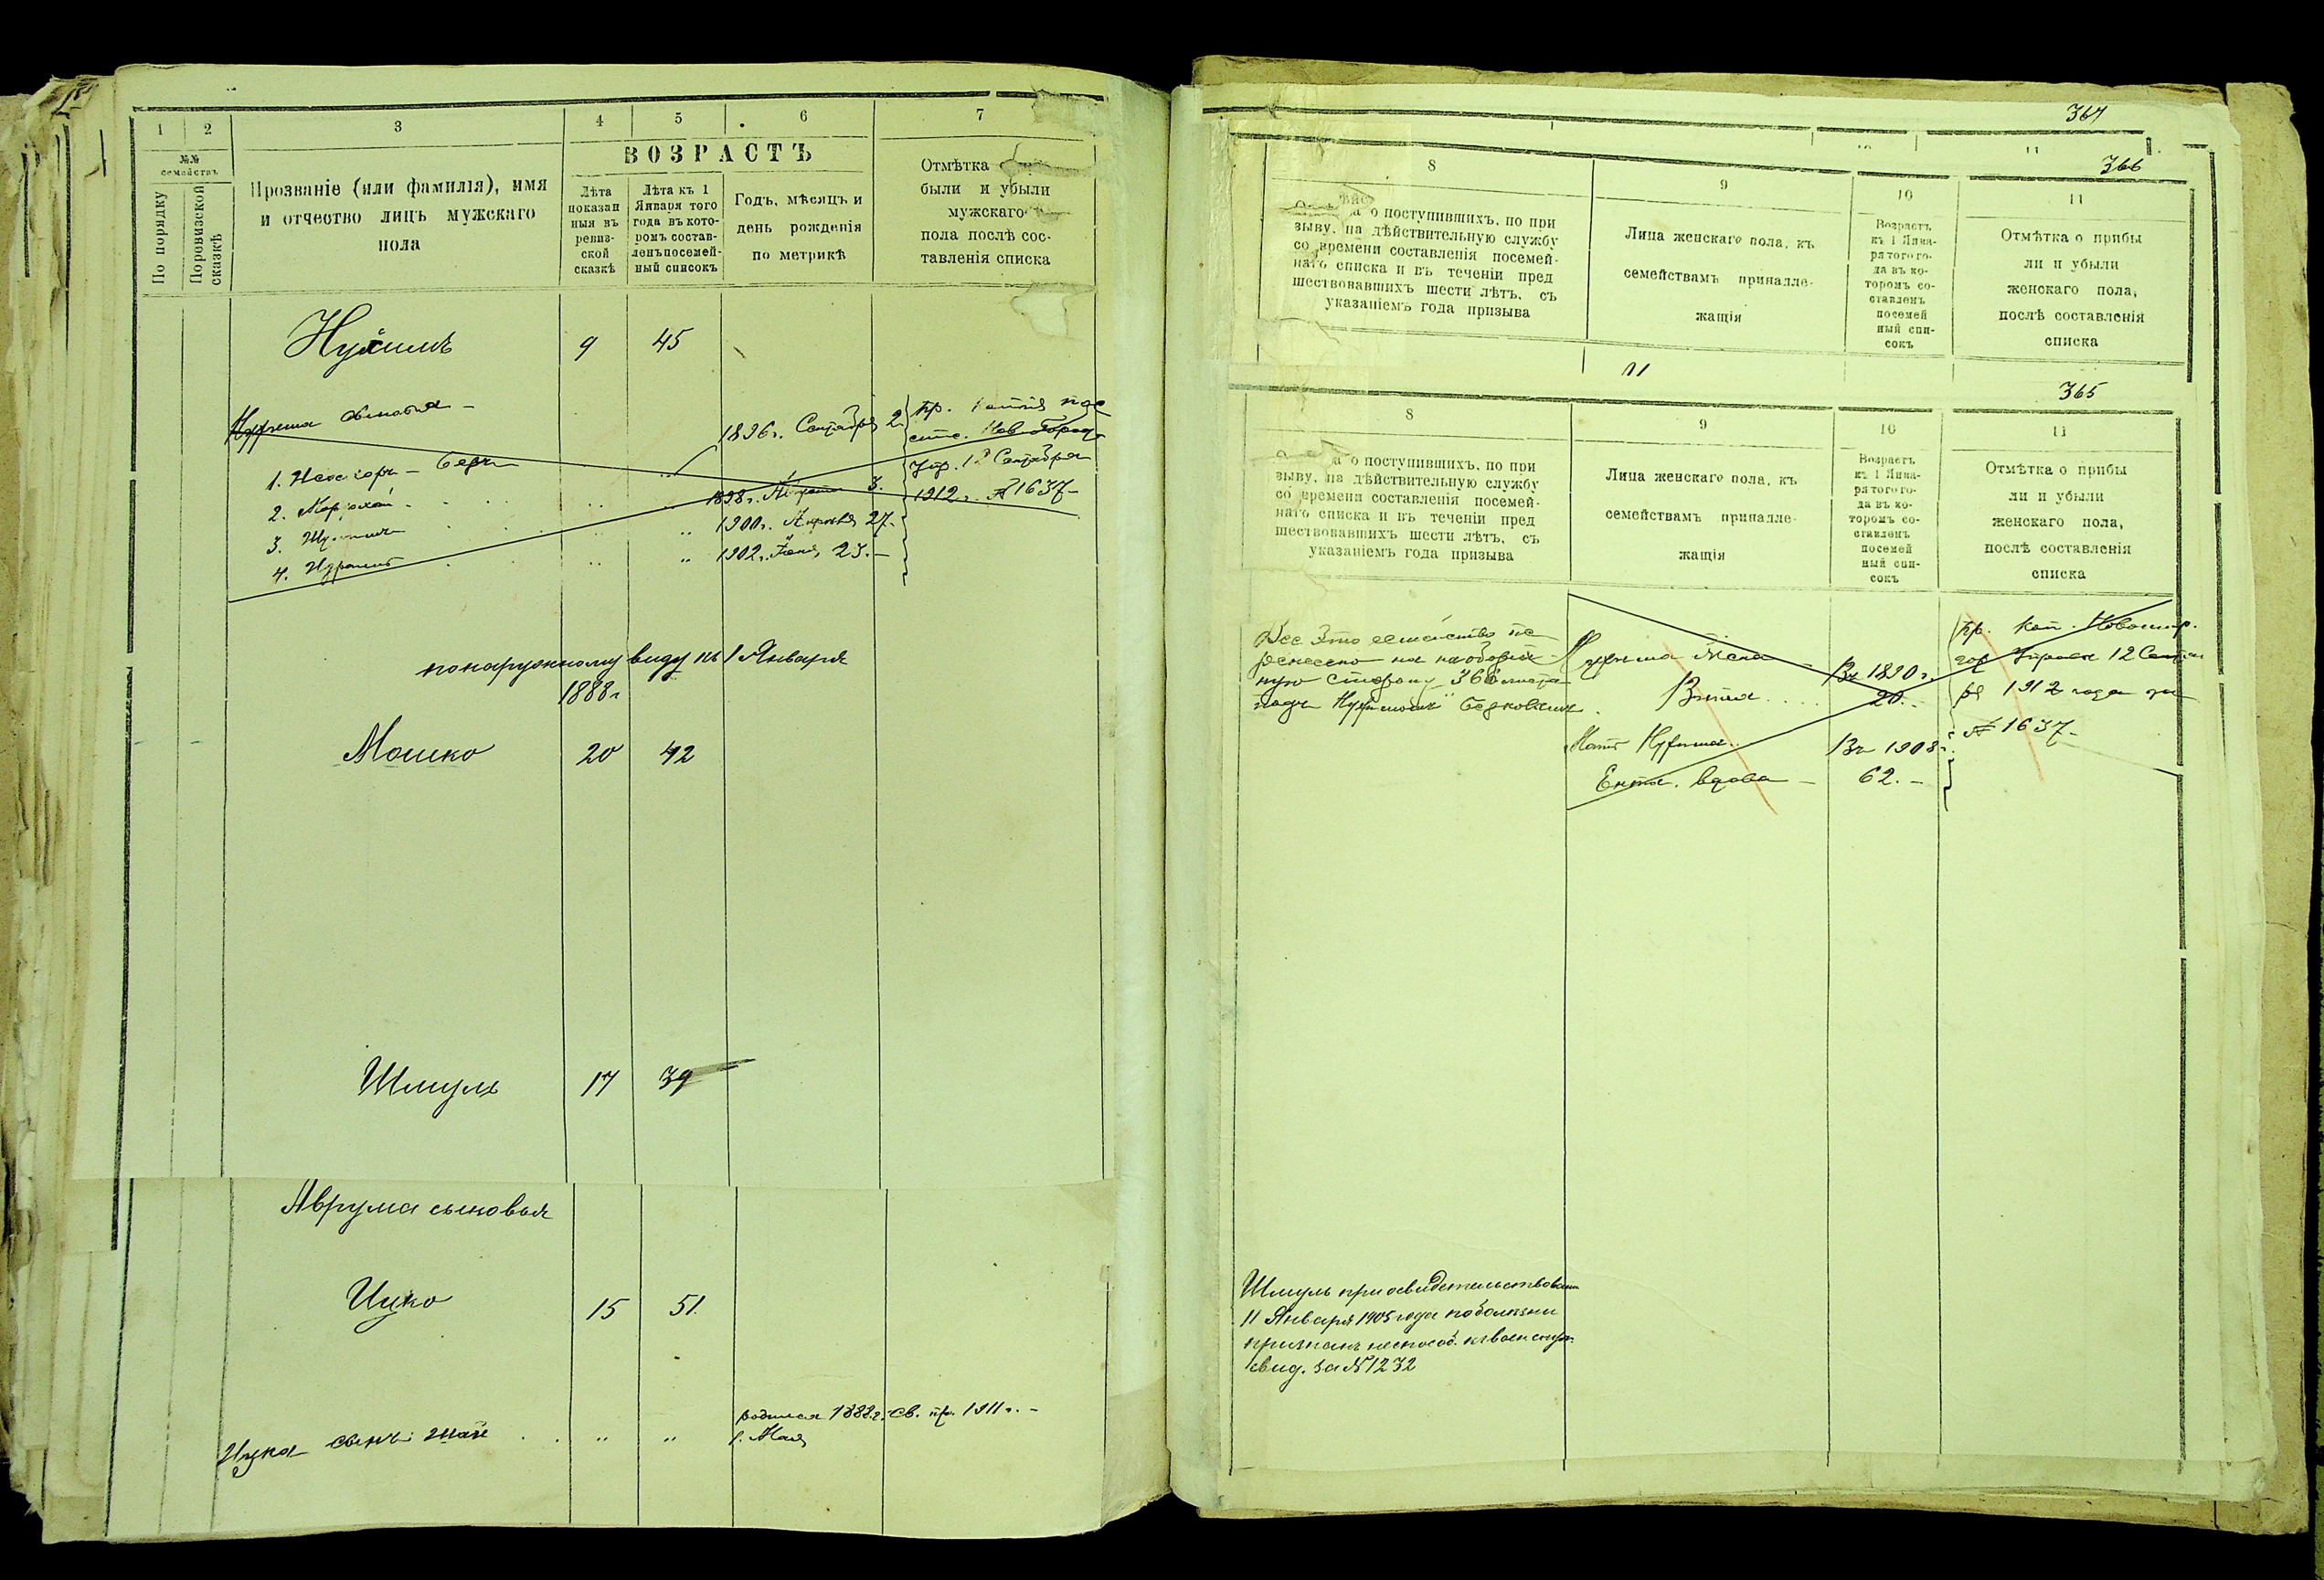 1 2 3 4 5 6 7
№№ семействъ
По порядку
По ревизской сказкѣ
Прозваніе (или фамилія), имя
и отчество лицъ мужскаго
пола
ВОЗРАСТЪ
Лѣта
показан
ныя въ
ревиз-
ской
сказкѣ
Лѣта къ 1
Января того
года въ кото-
ромъ состав-
ленъ посемей-
ный списокъ
Годъ, мѣсяцъ и
день рожденія
по метрикѣ
Отмѣтка
были и убыли
мужскаго
пола послѣ сос-
тавленія списка
Нухимъ 9 45
Нухима сыновья -
1. - Беръ 1896 г. Сентября 2
2. 1898 г. 3.
3. " 1900 г. Апрѣля 27.
4. " 1902 г. 23. -
Упр. 12 Сентября
1912 г. № 1637 -
по наружному виду къ 1 Января
1888 г
Мошко 20 42
Шмуль 17 39
Аврума сыновья
Ицко 15 51.
родился 1888 г. св. пр. 1911 г. -
Ицка сынъ: " " 1. Мая
367
11
366
8 9 10 11
о поступившихъ, по при
зыву, на дѣйствительную службу
со времени составленія посемей-
наго списка и въ теченіи пред
шествовавшихъ шести лѣтъ, съ
указаніемъ года призыва
Лица женскаго пола, къ
семействамъ принадле-
жащія
Возрастъ
къ 1 Янва-
ря того го-
да въ ко-
торомъ со-
ставленъ
посемей
ный спи-
сокъ
Отмѣтка о прибы
ли и убыли
женскаго пола,
послѣ составленія
списка
365
8 9 10 11
о поступившихъ, по при
зыву, на дѣйствительную службу
со времени составленія посемей-
наго списка и въ теченіи пред
шествовавшихъ шести лѣтъ, съ
указаніемъ года призыва
Лица женскаго пола, къ
семействамъ принадле-
жащія
Возрастъ
къ 1 Янва-
ря того го-
да въ ко-
торомъ со-
ставленъ
посемей
ный спи-
сокъ
Отмѣтка о прибы
ли и убыли
женскаго пола,
послѣ составленія
списка
Все это семейство пе-
ренесено на
ную сторону 366 листа
подъ Нухимомъ Берковымъ
Нухима жена Въ 1890 г.
20. -
Мать Нухима Въ 1908 г.
Ента. вдова - 62. -
12 Сентя
бря 1912 года за
№ 1637 -
Шмуль при освидетельствован
11 Января 1905 года по болѣзни
признанъ неспособ. къ воен служ.
свид. за № 1232